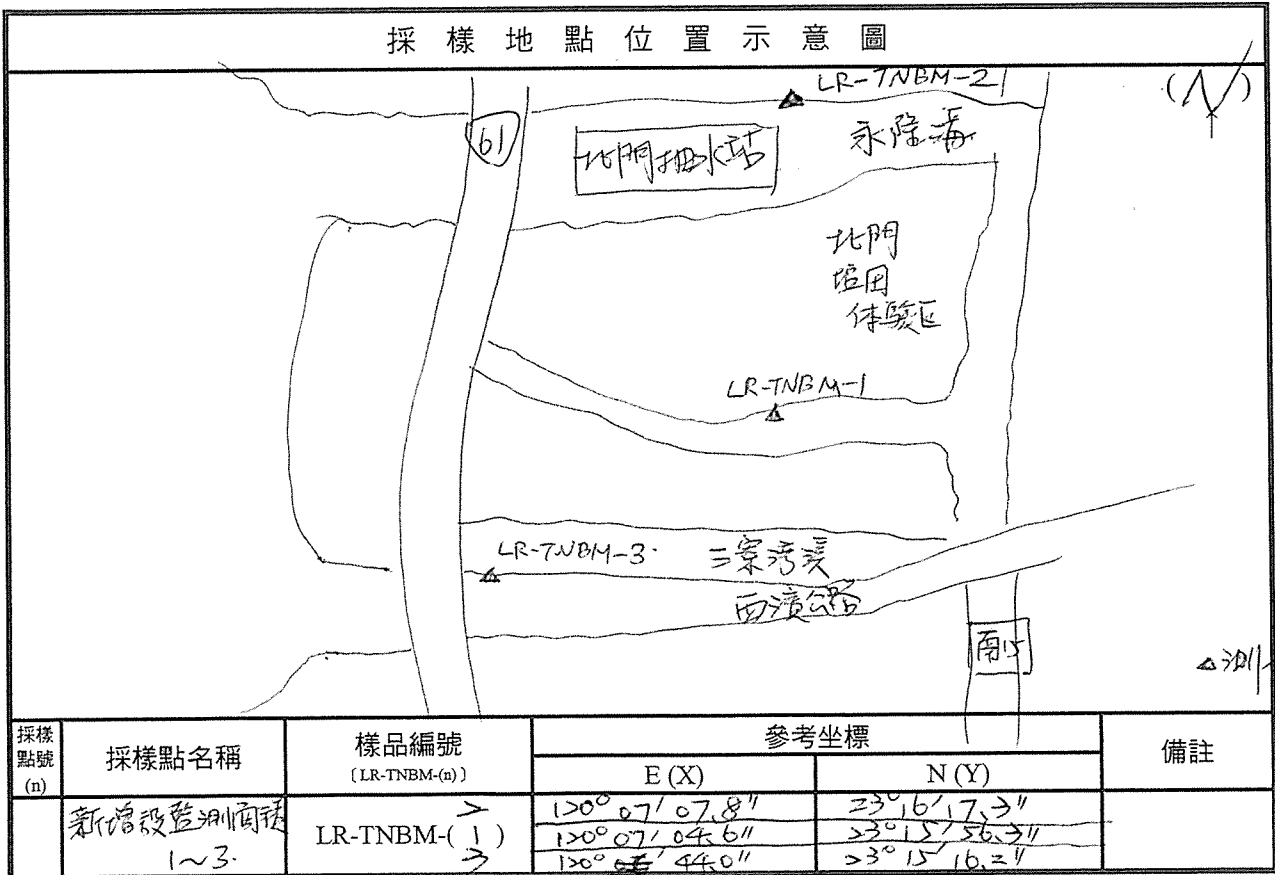 採樣地點位置示意圖
LR-TNBM-2
(N)
61
北門抽水站
永隆溝
北門
塩田
体驗區
LR-TNBM-1
LR-TNBM-3
三寮湾溪
西濱公路
南15
△測
採樣點號(n)
採樣點名稱
樣品編號
〔LR-TNBM-(n)〕
參考坐標
E (X)
N (Y)
備註
新增設監測
1~3.
LR-TNBM-(
2
1
3
)
120° 07' 07.8"
23° 16' 17.3"
120° 07' 04.6"
23° 15' 56.3"
44.0"
23° 15' 16.2"